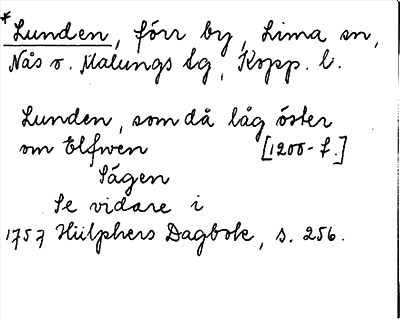 *Lunden, förr by, Lima sn,
Nås o. Malungs tg, Kopp. l.
Lunden, som då låg öster
om Elfwen [1200-t.]
Sägen
Se vidare i
1757 Hülphers Dagbok, s. 256.